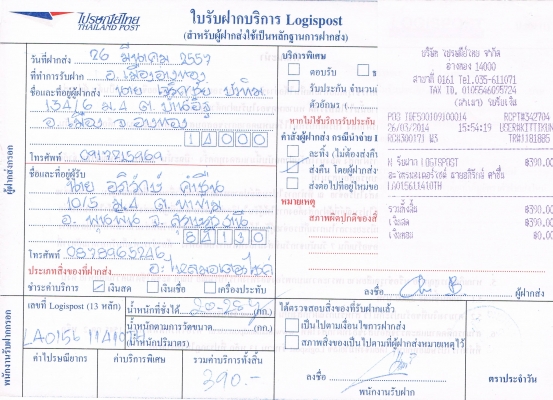 ไปรษณีย์ไทย
THAILAND POST
ใบรับฝากบริการ Logispost
(สำหรับผู้ฝากส่งใช้เป็นหลักฐานการฝากส่ง)
วันที่ฝากส่ง 26 มีนาคม 2557
ที่ทำการรับฝาก อ.เมืองอ่างทอง
ชื่อและที่อยู่ผู้ฝากส่ง นาย
134/6 ม.4 ต.
อ.เมือง จ.อ่างทอง
14000
โทรศัพท์ 0917715969
ผู้ฝากส่งกรอก
ชื่อและที่อยู่ผู้รับ
นาย อภิรักษ์
10/5 ม.4 ต.ท่าข้าม
อ.พุนพิน จ.สุราษฎร์ธานี
84130
โทรศัพท์ 0878965246
ประเภทสิ่งของที่ฝากส่ง อะไหล่มอเตอร์ไซค์
ชำระค่าบริการ เงินสด เงินเชื่อ เครื่องประทับ
บริการพิเศษ
ตอบรับ
รับประกัน จำนวนเงิน
ตัวอักษร (
หากไม่ใช้บริการรับประกัน
คำสั่งผู้ฝากส่ง กรณีนำจ่าย
ละทิ้ง (ไม่ต้องส่งคืน
ส่งคืน โดยผู้ฝากส่ง
ส่งต่อไปที่อยู่ใหม่ของ
หมายเหตุ
สภาพผิดปกติของสิ่
บริษัท ไปรษณีย์ไทย จำกัด
อ่างทอง 14000
สาขาที่ 0161 Tel.035-611071
TAX ID. 0105546095724
(สำเนา) รับเงิน
POS TDF500109100014 RCPT#342704
26/03/2014 15:54:19 USER#KITTIYUN
RCH300171 W3 TRN#1181885
N รับฝาก LOGISPOST ฿390.00
LA015611410TH
รวมทั้งสิ้น ฿390.00
เงินสด ฿390.00
เงินทอน ฿0.00
ลงชื่อ ผู้ฝากส่ง
พนักงานรับฝากกรอก
เลขที่ Logispost (13 หลัก)
LA0156 11410
น้ำหนักที่ชั่งได้ (กก.)
น้ำหนักตามการวัดขนาด (กก.)
(น้ำหนักปริมาตร)
ค่าไปรษณียากร ค่าบริการพิเศษ รวมค่าบริการทั้งสิ้น
390.-
ได้ตรวจสอบสิ่งของที่รับฝากแล้ว
เป็นไปตามเงื่อนไขการฝากส่ง
สภาพสิ่งของเป็นไปตามที่ผู้ฝากส่งหมายเหตุไว้
ลงชื่อ
พนักงานรับฝาก
ตราประจำวัน